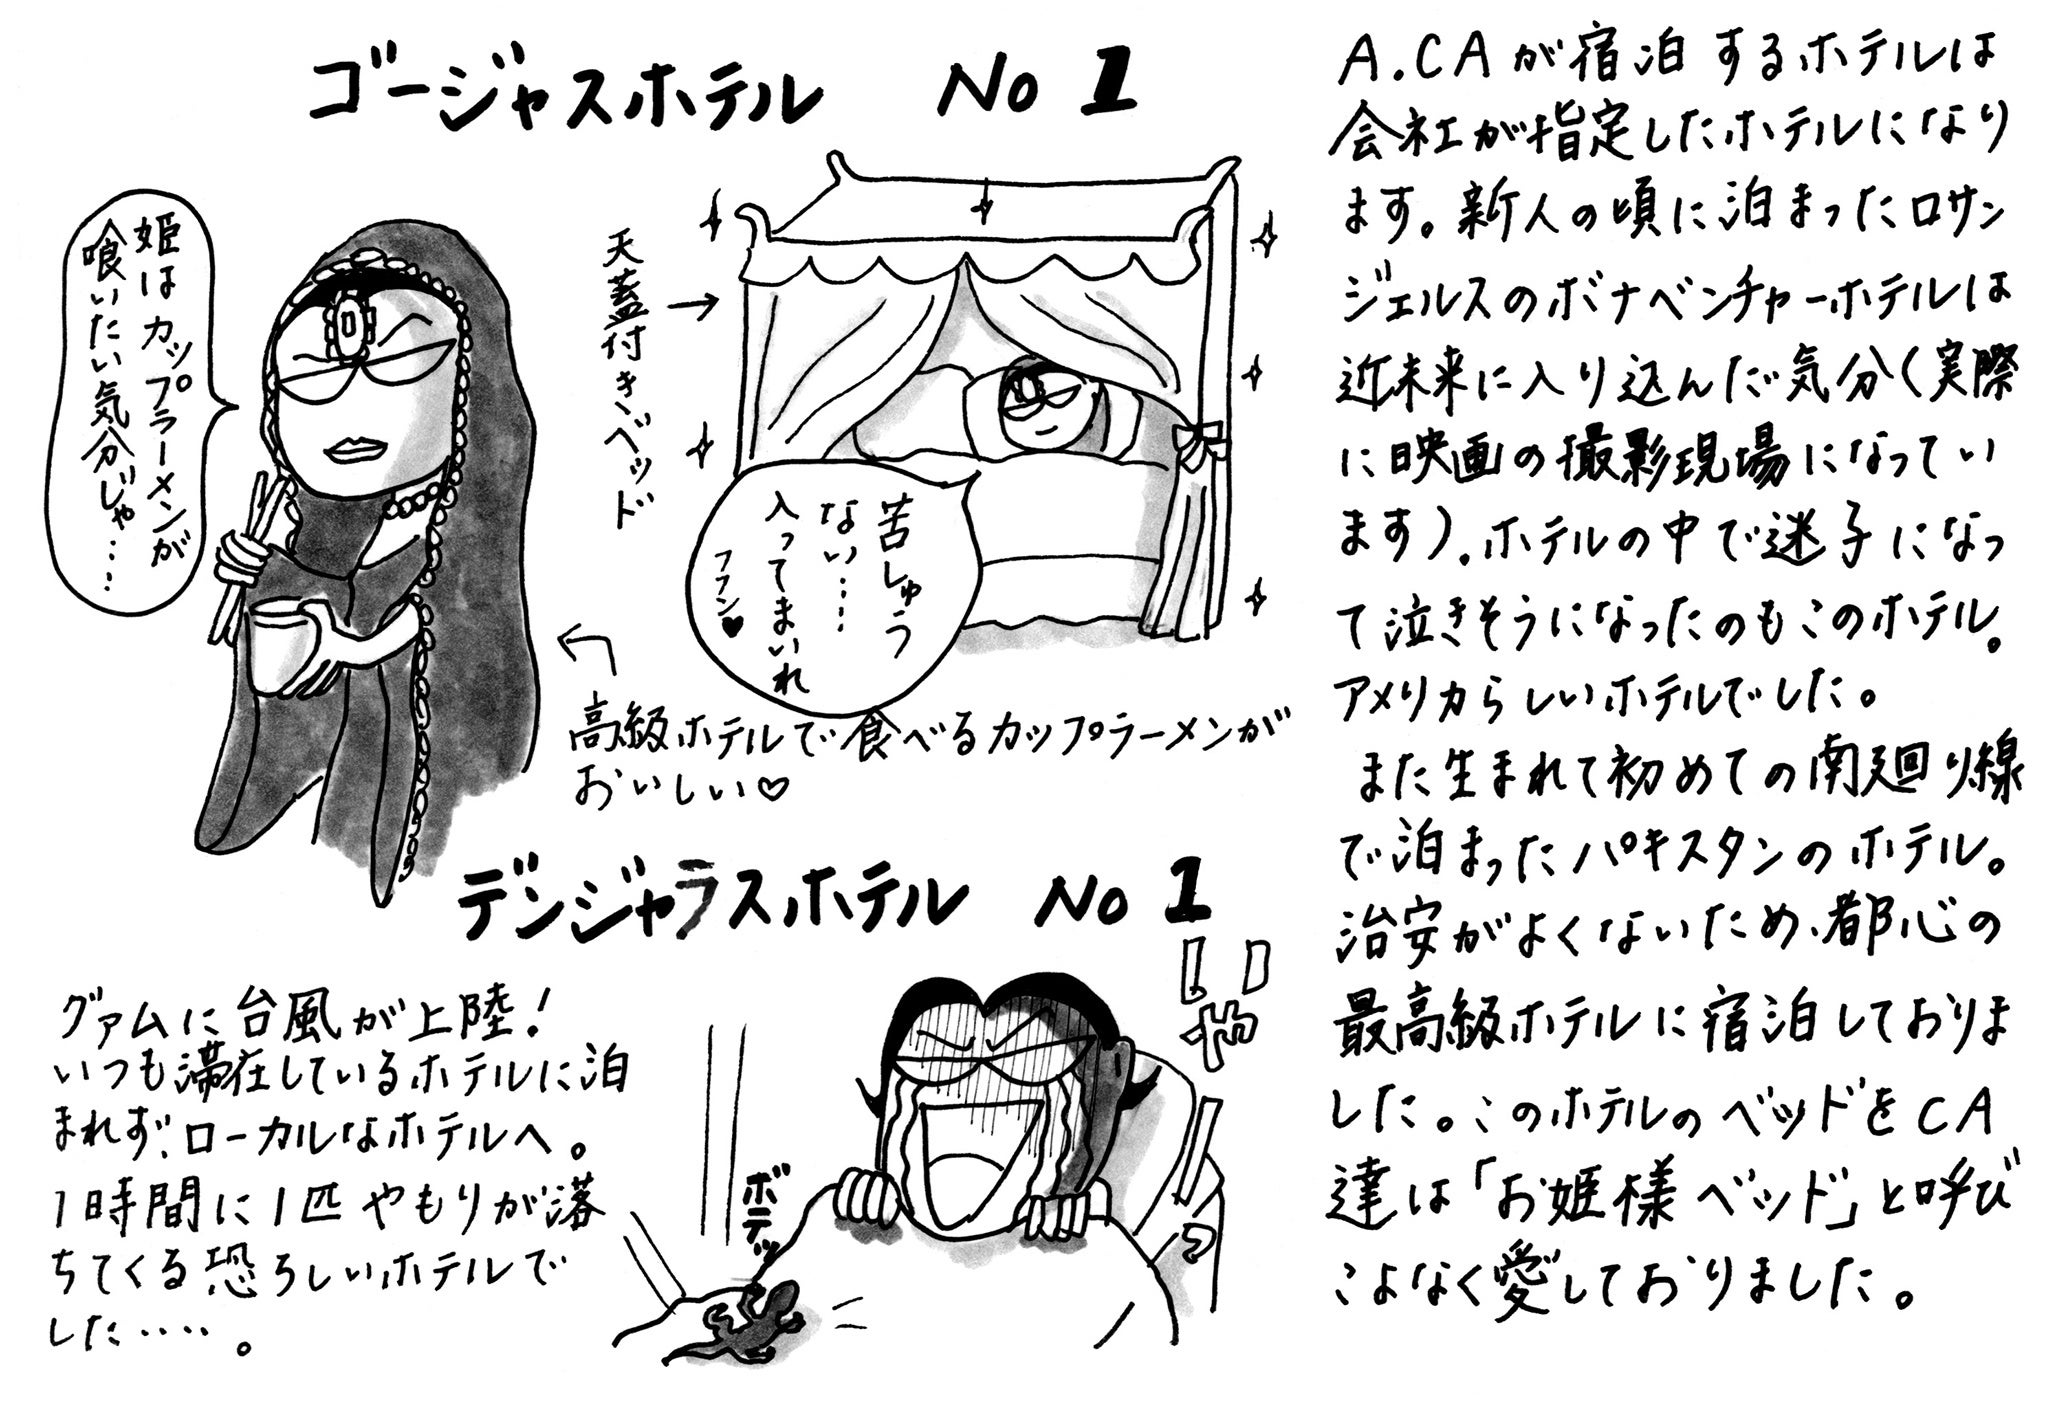 ゴージャスホテル No 1
姫はカップラーメンが
喰いたい気分じゃ…
天蓋付きベッド
苦しゅう
ない‥‥
入ってまいれ
フフン♥
高級ホテルで食べるカップラーメンが
おいしい♡
デンジャラスホテル No 1
グァムに台風が上陸!
いつも滞在しているホテルに泊
まれず、ローカルなホテルへ。
1時間に1匹やもりが落
ちてくる恐ろしいホテルで
した‥‥。
いや
ボテッ
A.CAが宿泊するホテルは
会社が指定したホテルになり
ます。新人の頃に泊まったロサン
ジェルスのボナベンチャーホテルは
近未来に入り込んだ気分(実際
に映画の撮影現場になってい
ます)。ホテルの中で迷子になっ
て泣きそうになったのもこのホテル。
アメリカらしいホテルでした。
また生まれて初めての南廻り線
で泊まったパキスタンのホテル。
治安がよくないため、都心の
最高級ホテルに宿泊しておりま
した。このホテルのベッドをCA
達は「お姫様ベッド」と呼び
こよなく愛しておりました。